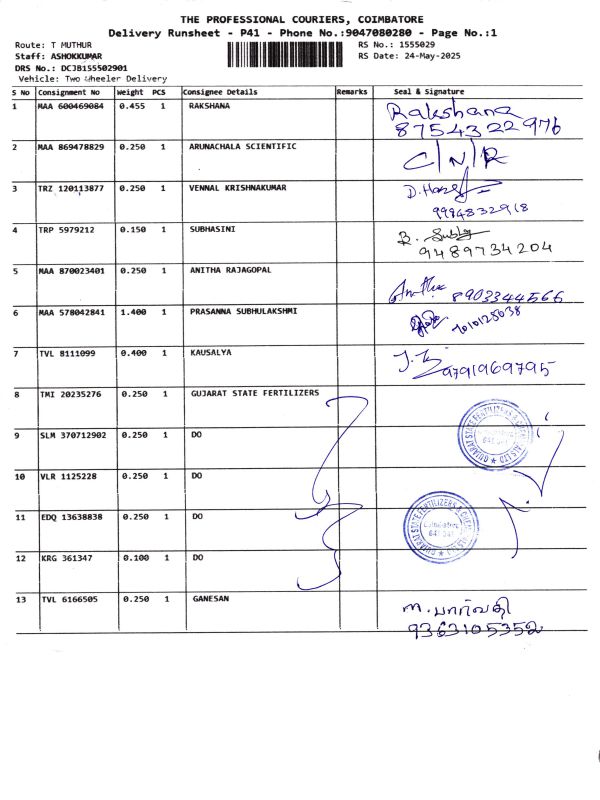 THE PROFESSIONAL COURIERS, COIMBATORE
Delivery Runsheet - P41 - Phone No.:9047080280 - Page No.:1
Route: T MUTHUR RS No.: 1555029
Staff: ASHOKKUMAR RS Date: 24-May-2025
DRS No.: DCJB155502901
Vehicle: Two Wheeler Delivery
S No Consignment No Weight PCS Consignee Details Remarks Seal & Signature
1 MAA 600469084 0.455 1 RAKSHANA Rakshana
8754322976
2 MAA 869478829 0.250 1 ARUNACHALA SCIENTIFIC C/N/R
3 TRZ 120113877 0.250 1 VENNAL KRISHNAKUMAR
9994832918
4 TRP 5979212 0.150 1 SUBHASINI
9489734204
5 MAA 870023401 0.250 1 ANITHA RAJAGOPAL Anitha 8903344566
6 MAA 578042841 1.400 1 PRASANNA SUBHULAKSHMI
7 TVL 8111099 0.400 1 KAUSALYA 9791969795
8 TMI 20235276 0.250 1 GUJARAT STATE FERTILIZERS
9 SLM 370712902 0.250 1 DO
10 VLR 1125228 0.250 1 DO
11 EDQ 13638838 0.250 1 DO
12 KRG 361347 0.100 1 DO
13 TVL 6166505 0.250 1 GANESAN m. பார்வதி
9363105352